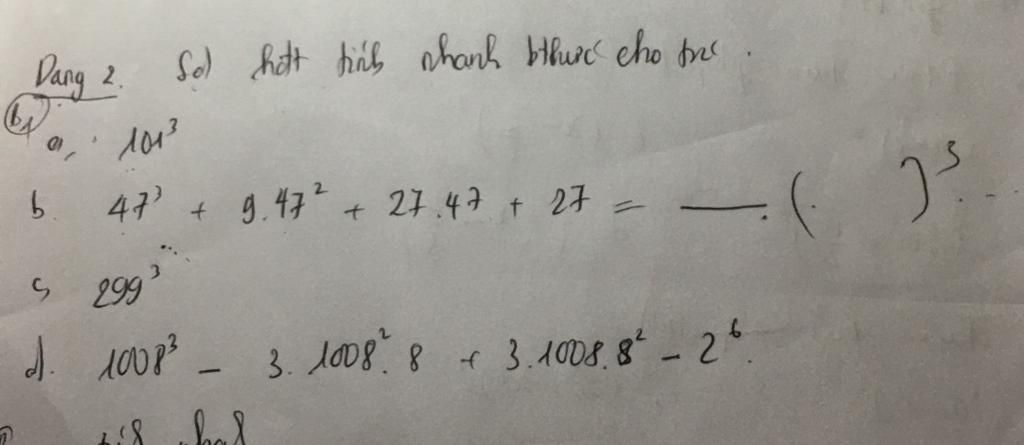 Dạng 2. Sd hđt tính nhanh bthức cho trc.
b1
a, 101³
b. 47³ + 9.47² + 27.47 + 27 = ___. ( )³...
c, 299³
d. 1008³ - 3.1008².8 + 3.1008.8² - 2⁶.